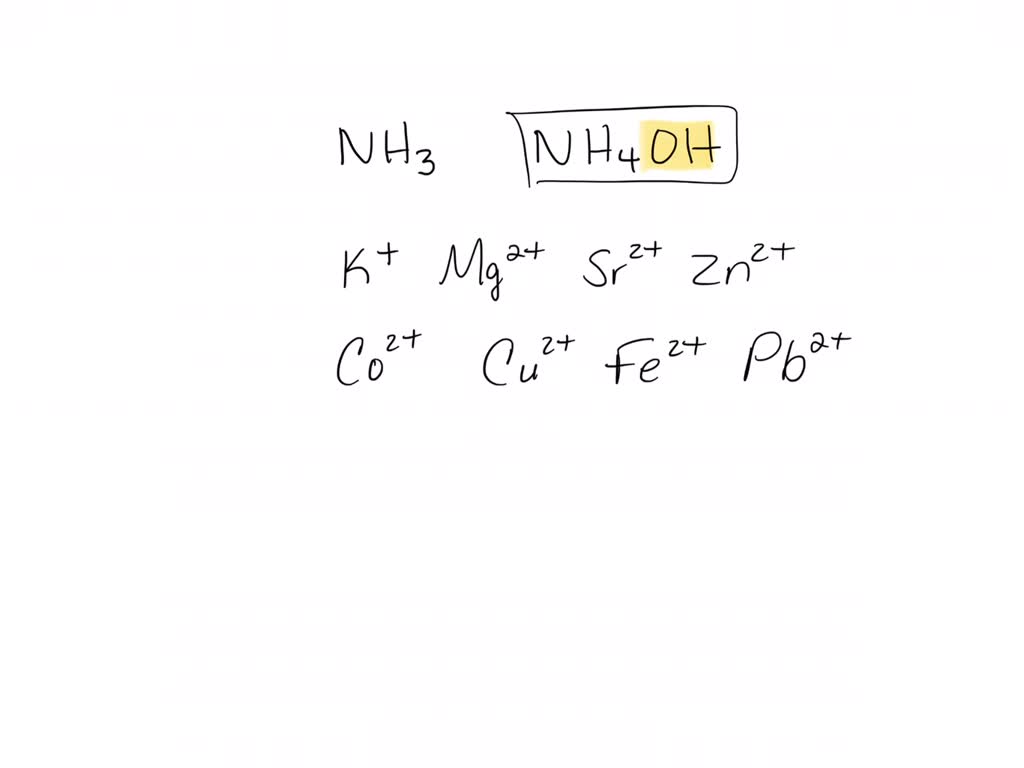 NH₃ NH₄OH
K⁺ Mg²⁺ Sr²⁺ Zn²⁺
Co²⁺ Cu²⁺ Fe²⁺ Pb²⁺